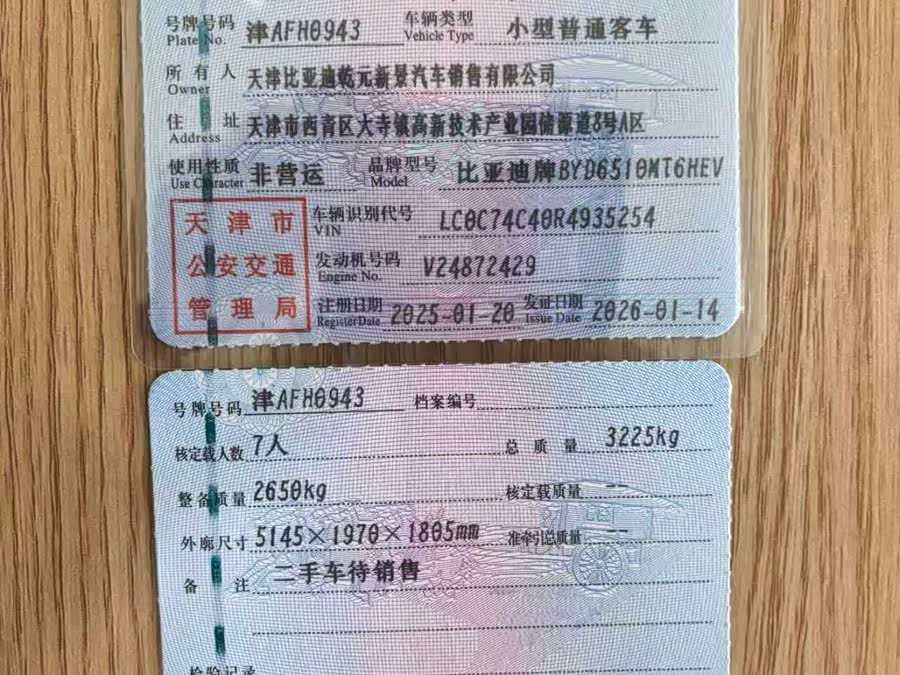 号牌号码 津AFH0943 车辆类型 小型普通客车
Plate No. Vehicle Type
所有人 天津比亚迪乾元新景汽车销售有限公司
Owner
住址 天津市西青区大寺镇高新技术产业园储源道8号A区
Address
使用性质 非营运 品牌型号 比亚迪牌BYD6510MT6HEV
Use Character Model
天津市
公安交通
管理局
车辆识别代号 LC0C74C40R4935254
VIN
发动机号码 V24872429
Engine No.
注册日期 2025-01-20 发证日期 2026-01-14
Register Date Issue Date
号牌号码 津AFH0943 档案编号
核定载人数 7人 总质量 3225kg
整备质量 2650kg 核定载质量 --
外廓尺寸 5145×1970×1805mm 准牵引总质量 --
备注 二手车待销售
检验记录